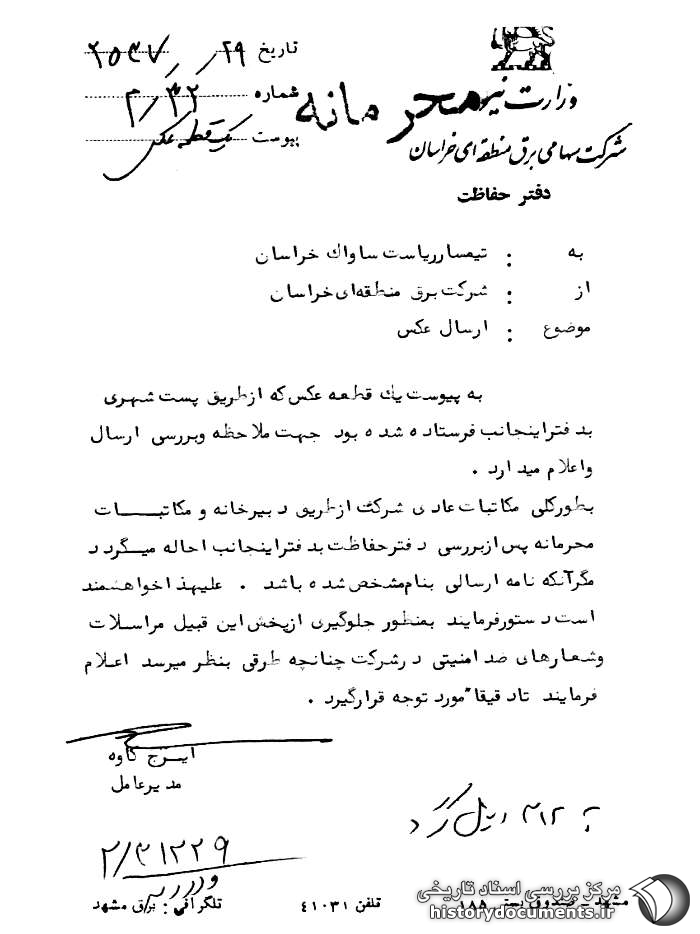 تاریخ ۲۹ / / ۲۵۳۷
شماره ۴۲/م
پیوست یک قطعه عکس
محرمانه
وزارت نیرو
شرکت سهامی برق منطقه‌ای خراسان
دفتر حفاظت
به : تیمسار ریاست ساواک خراسان
از : شرکت برق منطقه‌ای خراسان
موضوع : ارسال عکس
به پیوست یک قطعه عکس که از طریق پست شهری
بدفتر اینجانب فرستاده شده بود جهت ملاحظه وبررسی ارسال
واعلام میدارد .
بطورکلی مکاتبات عادی شرکت از طریق دبیرخانه و مکاتبات
محرمانه پس از بررسی دفتر حفاظت بدفتر اینجانب احاله میگردد
مگرآنکه نامه ارسالی بنام مشخص شده باشد . علیهذا خواهشمند
است دستور فرمایند بمنظور جلوگیری از پخش این قبیل مراسلات
وشعارهای ضد امنیتی در شرکت چنانچه طرقی بنظر میرسد اعلام
فرمایند تا دقیقا" مورد توجه قرار گیرد .
ایرج کاوه
مدیرعامل
به ۳۱۲ ارسال گردد
۲/۳۱۲۲۹
مشهد - صندوق پستی ۱۸۸ تلفن ۴۱۰۳۱ تلگرافی : برق مشهد
مرکز بررسی اسناد تاریخی
historydocuments.ir